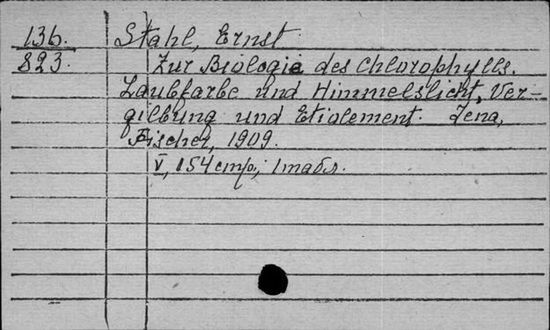 136.
823.
Stahl, Ernst
Zur Biologie des Chlorophylls.
Laubfarbe und Himmelslicht, Ver-
gilbung und Etiolement. Jena,
Fischer, 1909.
V, 154 стр., 1 табл.